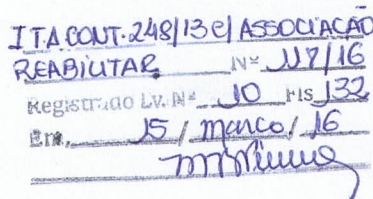 I T.A.CONT. 248/13 c/ ASSOCIAÇÃO
REABILITAR Nº 117/16
Registrado Lv. Nº 10 Fls 132
Em, 15 / março / 16